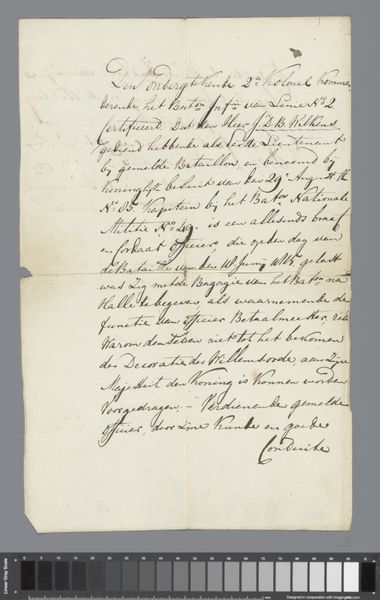 Den ondergetekende 2de Kolonel komman-
derende het Batton Infie van Linie No 2
Certificeerd. Dat den Heer J.D.B. Wilkens
gediend hebbende als eerste Lieutenant
bij gemelde Bataillon en benoemd bij
Koninglijk besluit van den 29e Augustt
No 85. Kapitein bij het Baton Nationale
Militie No 29. is een allesinds braaf
en cordaat officier die op den dag van
de Bataille van den 18 Junij 1815 gelast
was zig met de Bagagie van het Baton na
Halle te begeven, als waarnemende de
functie van officier Betaalmeester,
Warom denzelven niet tot het bekomen
des Decoratie der Willemsorde aan Zijne
Majesteit den Koning is konnen worden
Voorgedragen. - Verdienende gemelde
officier, door zijne kunde en goede
Conduite